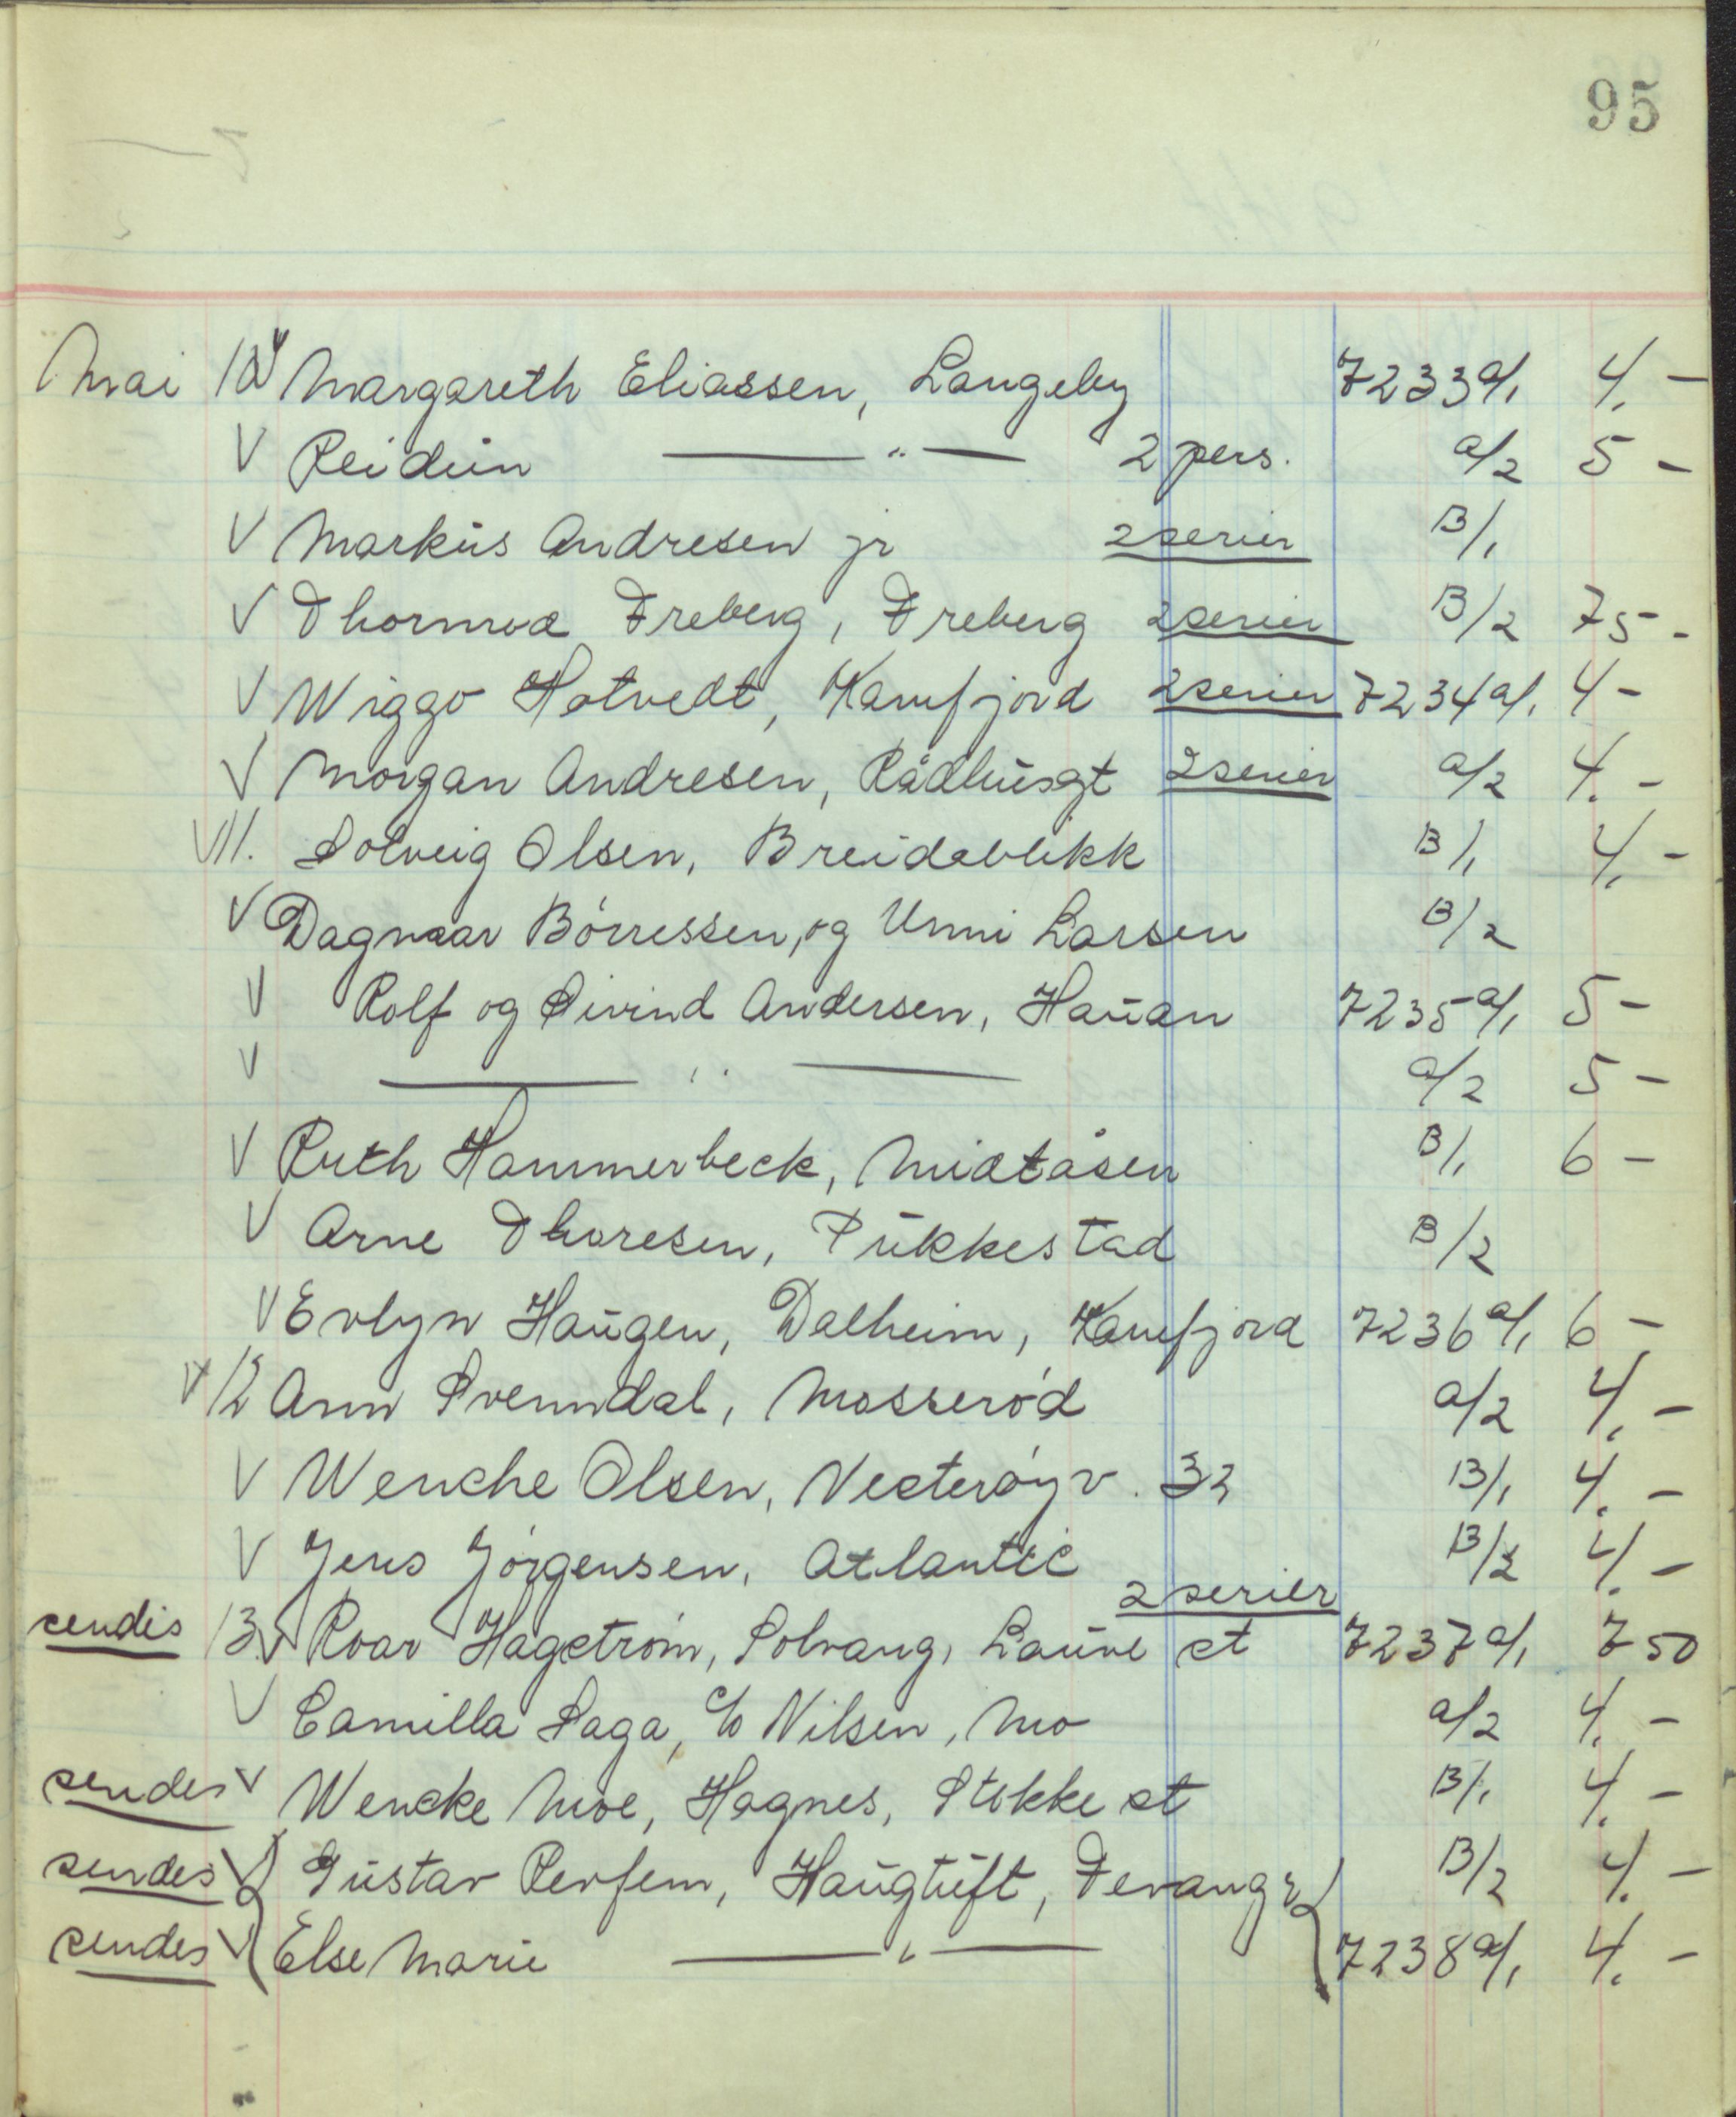 95
Mai 10 V Margareth Eliassen, Langeby 7233 a/1 4.-
V Reidun —"— 2 pers. a/2 5-
V Markus Andresen jr 2 serier B/1
V Thormod Freberg, Freberg 2 serier B/2 75-
V Wiggo Hotvedt, Kamfjord 2 serier 7234 a/1 4-
V Morgan Andresen, Rådhusgt 2 serier a/2 4.-
V 11. Solveig Olsen, Breidablikk B/1 4.-
V Dagmar Börressen, og Unni Larsen B/2
V Rolf og Öivind Andersen, Hauan 7235 a/1 5-
V —"— a/2 5-
V Ruth Hammerbeck, Midtåsen B/1 6-
V Arne Thoresen, Pukkestad B/2
V Evlyn Haugen, Dalheim, Kamfjord 7236 a/1 6-
V 12 Ann Svenndal, Mosseröd a/2 4.-
V Wenche Olsen, Vesteröyv. 32 B/1 4.-
V Jens Jörgensen, Atlantic B/2 4.-
2 serier
sendes 13. V Roar Hagström, Solvang, Lauve st 7237 a/1 7 50
V Camilla Saga, c/o Nilsen, Mo a/2 4.-
sendes V Wencke Moe, Hagnes, Stokke st B/1 4.-
sendes V Gustav Perfem, Haugtuft, Tevang B/2 4.-
sendes V Else Marie —"— 7238 a/1 4.-